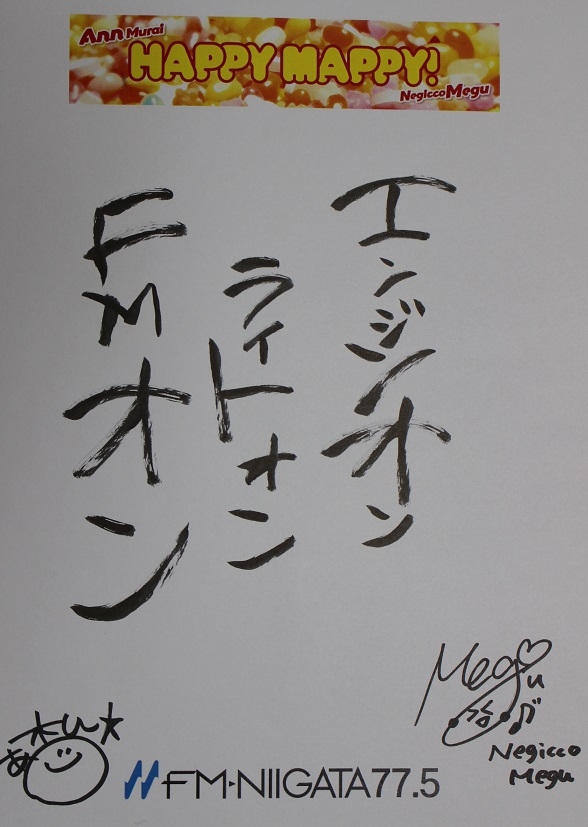 Ann Murai
HAPPY MAPPY!
Negicco Megu
エンジンオン
ライトォン
FMオン
Megu
Negicco
Megu
FM-NIIGATA 77.5